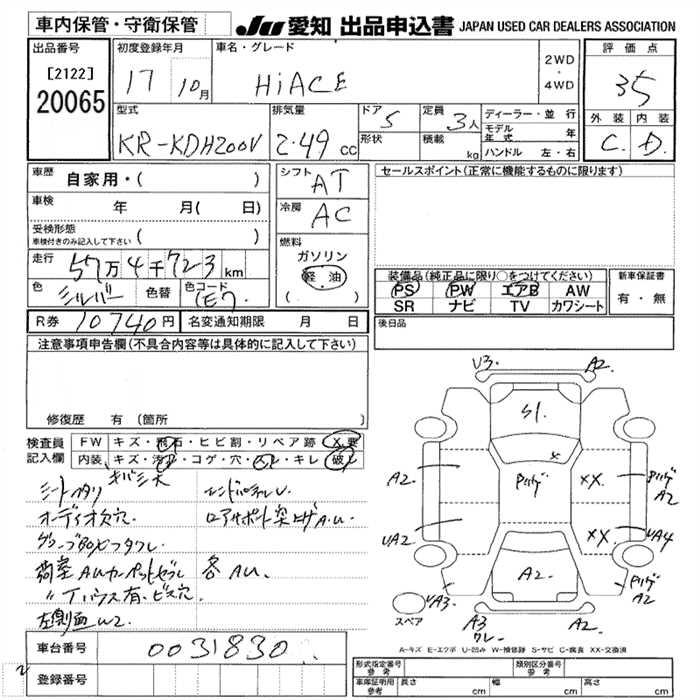 車内保管・守衛保管
JU 愛知 出品申込書 JAPAN USED CAR DEALERS ASSOCIATION
出品番号
[2122]
20065
初度登録年月
17 10月
車名・グレード
HiACE
2WD
・
4WD
評価点
35
型式
KR-KDH200V
排気量
2.49 cc
ドア 5
形状
定員 3人
積載 kg
ディーラー・並行
モデル年式 年
ハンドル 左・右
外装 内装
C. D.
車歴 自家用・( )
車検 年 月( 日)
受検形態
車検付きのみ記入して下さい ( )
走行 57万4千723 km
色 シルバー 色替 色コード (E7
シフト AT
冷房 AC
燃料
ガソリン
軽油
( )
セールスポイント(正常に機能するものに限ります)
装備品(純正品に限り○をつけてください)
PS PW エアB AW
SR ナビ TV カワシート
新車保証書
有・無
R券 10740円 名変通知期限 月 日
後日品
注意事項申告欄(不具合内容等は具体的に記入して下さい)
修復歴 有 (箇所
検査員
記入欄
FW キズ・飛石・ヒビ割・リペア跡・X要
内装 キズ・汚・コゲ・穴・・キレ・破
シートヘタリ キバミ大
オーディオ欠穴
荷室AUカーペット
各AU
左側面W2
V3 A2
S1
A2 XX A2
UA2 XX UA4
A2 A2
UA3 A3 A2
クレ
スペア
A-キズ E-エクボ U-凹み W-補修跡 S-サビ C-腐食 XX-交換済
車台番号 0031830
登録番号
形式指定番号 類別区分番号
車庫証明用参考 長さ cm 幅 cm 高さ cm